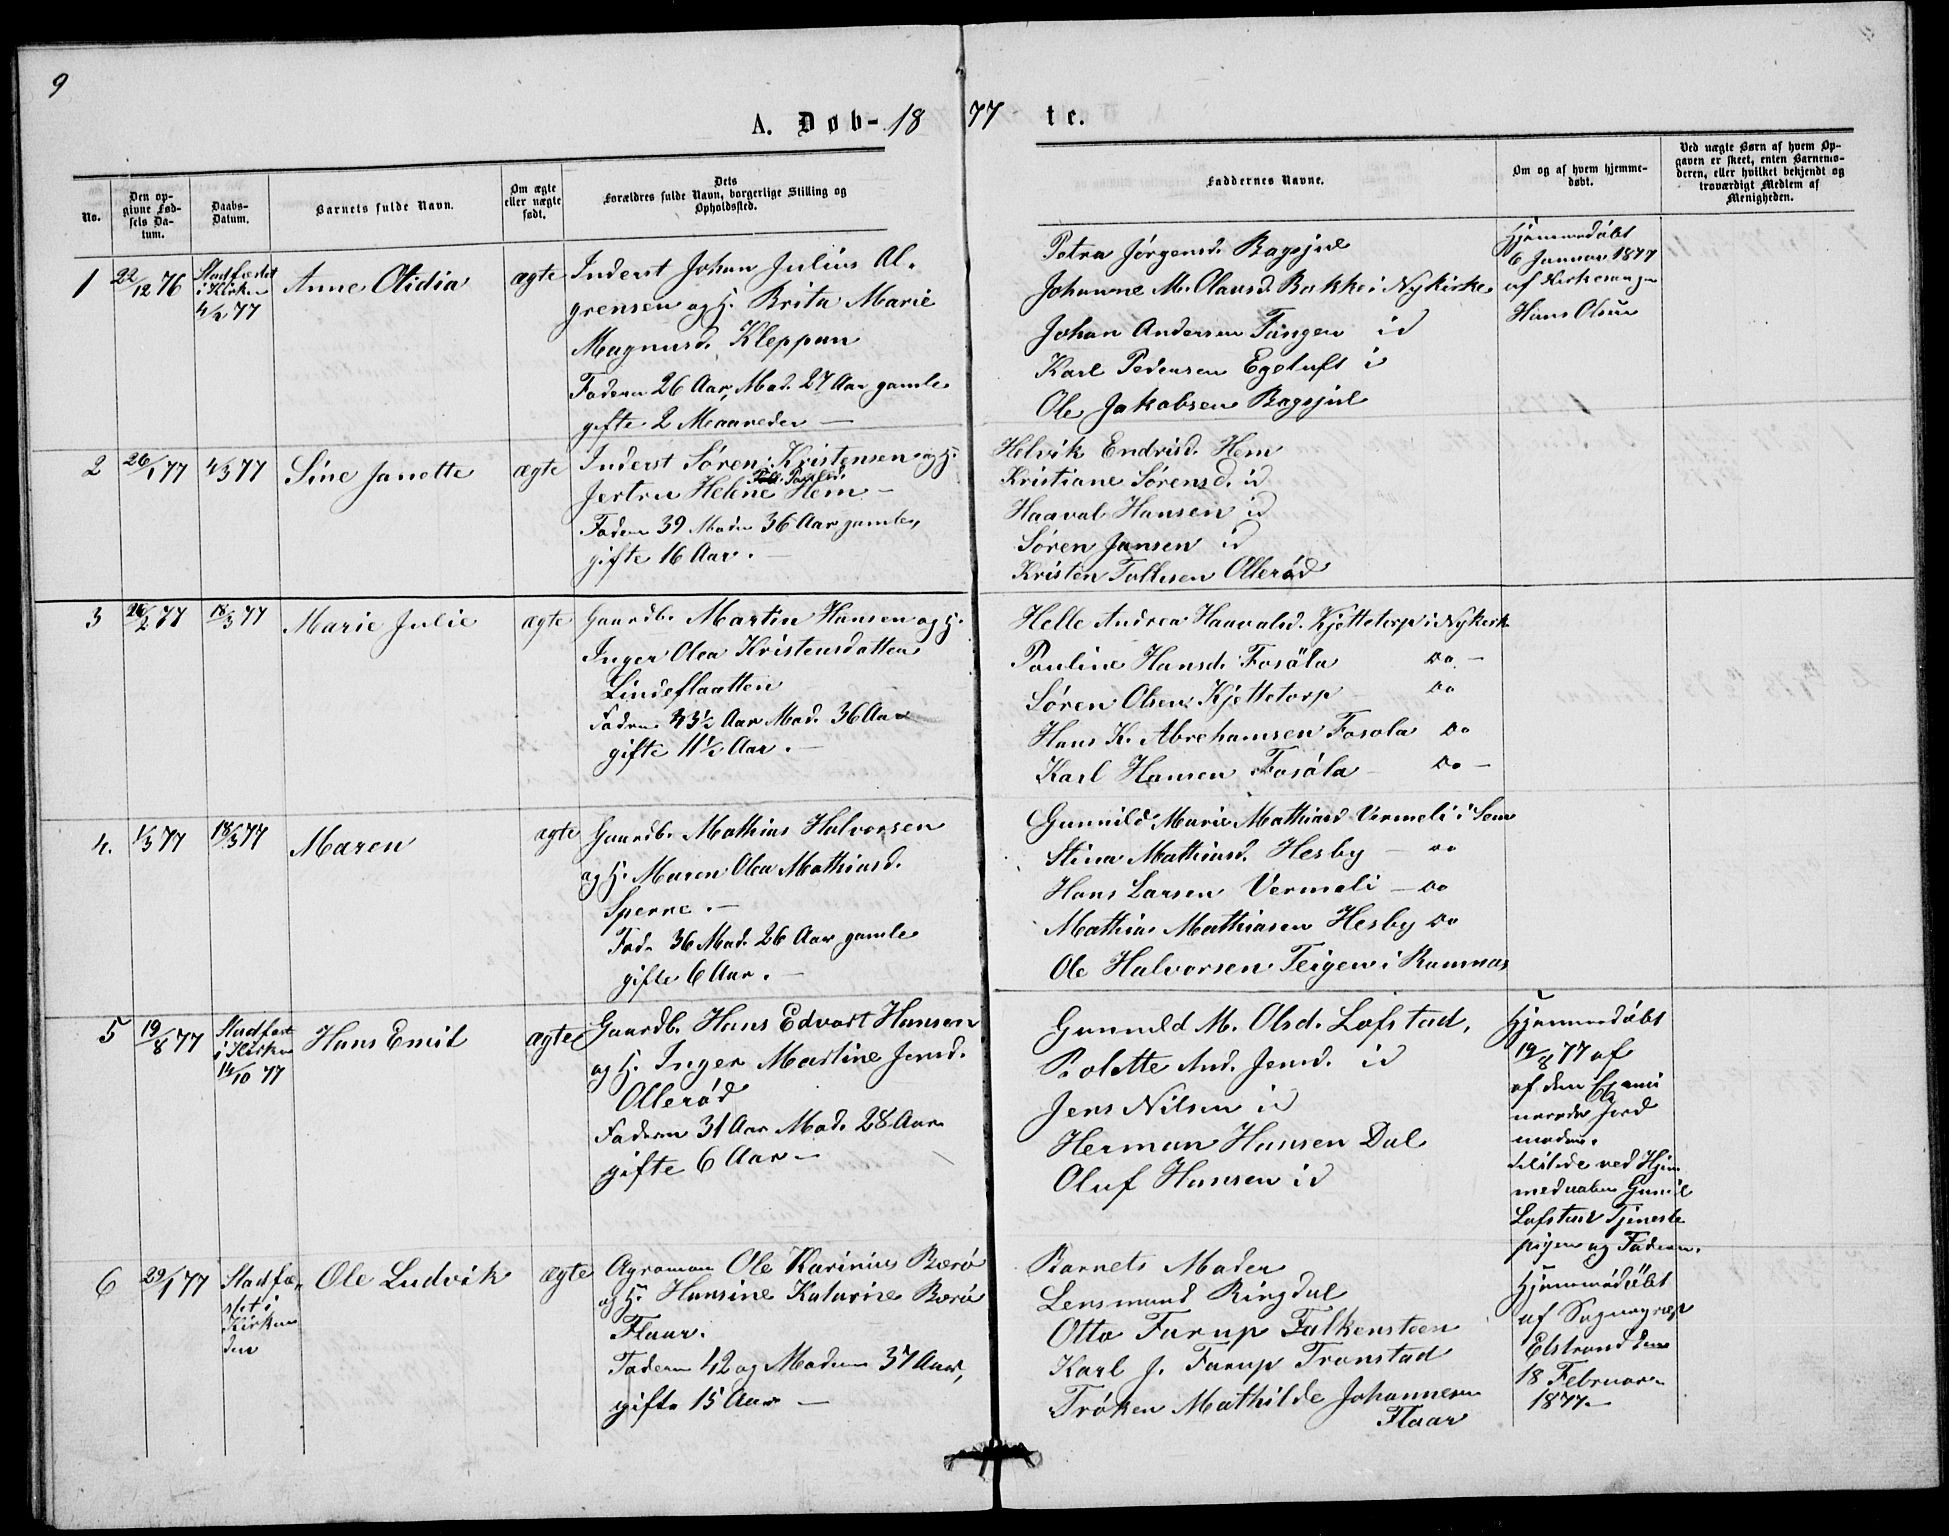 9
A. Døb- 18 77 te.
No.
Den opgivne Fødsels Datum.
Daabs-Datum.
Barnets fulde Navn.
Om ægte eller uægte født.
Dets Forældres fulde Navn, borgerlige Stilling og Opholdssted.
Faddernes Navne.
Om og af hvem hjemmedøbt.
Ved uægte Børn af hvem Opgaven er skeet, enten Barnemoderen, eller hvilket bekjendt og troværdigt Medlem af Menigheden.
1
22/12 76
Stadfæstet
i Kirken
4/2 77
Anne Olidia
ægte
Inderst Johan Julius Al-
grensen og H. Brita Marie
Magnusd. Kleppan
Faderen 26 Aar, Mod. 27 Aar gamle
gifte 2 Maaneder —
Petra Jørgensd. Bagsjul
Johanne M. Olausd. Bakke i Nykirke
Johan Andersen Tangen id
Karl Pedersen Egetuft i
Ole Jakobsen Bagsjul
Hjemmedøbt
6 Januar 1877
af Kirkesanger
Hans Olsen
2
26/1 77
4/3 77
Sine Janette
ægte
Inderst Søren Kristensen og H.
Jertru Helene Hem —
Faderen 39 Moder 36 Aar gamle,
gifte 16 Aar. —
Helvik Endrisd. Hem
Kristiane Sørensd. id
Haaval Hansen id
Søren Jansen id
Kristen Tollesen Ollerød
3
26/2 77
18/3 77
Marie Julie
ægte
Gaardb. Martin Hansen og H.
Inger Olea Kristensdatter
Lindeflaatten
Fadren 43½ Aar Mod. 36 Aar
gifte 11½ Aar. —
Helle Andrea Haavalsd. Kjettetorp i Nykirk
Pauline Hansd. Fosøla Do —
Søren Olsen Kjettetorp — Do
Hans K. Abrehamsen Fosola Do
Karl Hansen Fosøla — Do —
4.
1/3 77
18/3 77
Maren
ægte
Gaardb. Mathias Halvorsen
og H. Maren Olea Mathiasd.
Sperre. —
Fad. 36 Mod. 26 Aar gamle
gifte 6 Aar. —
Gunnild Marie Mathiasd Vermeli i Sem
Stina Mathiasd. Hesby — Do
Hans Larsen Vermeli — Do
Mathias Mathiasen Hesby Do
Ole Halvorsen Teigen i Ramnas
5
19/8 77
Stadfæst
i Kirken
14/10 77
Hans Emil
ægte
Gaardb. Hans Edvart Hansen
og H. Inger Martine Jensd.
Ollerød
Faderen 31 Aar Mod. 28 Aar
gifte 6 Aar —
Gunnild M. Olsd. Lofstad,
Rolette And. Jensd. id
Jens Nilsen id
Herman Hansen Dal
Oluf Hansen id
Hjemmedøbt
19/8 77 af
af den Exami
nerede Jord
moder.
tilstede ved Hjem
medaaben Gunil
Lofstad Tjeneste
pigen og Faderen.
6
29/1 77
Stadfæ-
stet i
Kirken
den
Ole Ludvik
ægte
Agronom Ole Karinius Bærø
og H. Hansine Katarine Bærø
Flaar.
Faderen 42 og Moderen 37 Aar,
gifte 15 Aar —
Barnets Moder
Lensmand Ringdal
Otto Farup Falkensteen
Karl J. Farup Tronstad
Frøken Mathilde Johannesen
Flaar
Hjemmedøbt
af Sognepræst
Elstrand den
18 Februar
1877. —